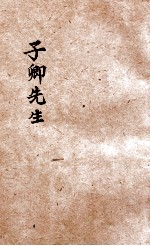 子卿先生